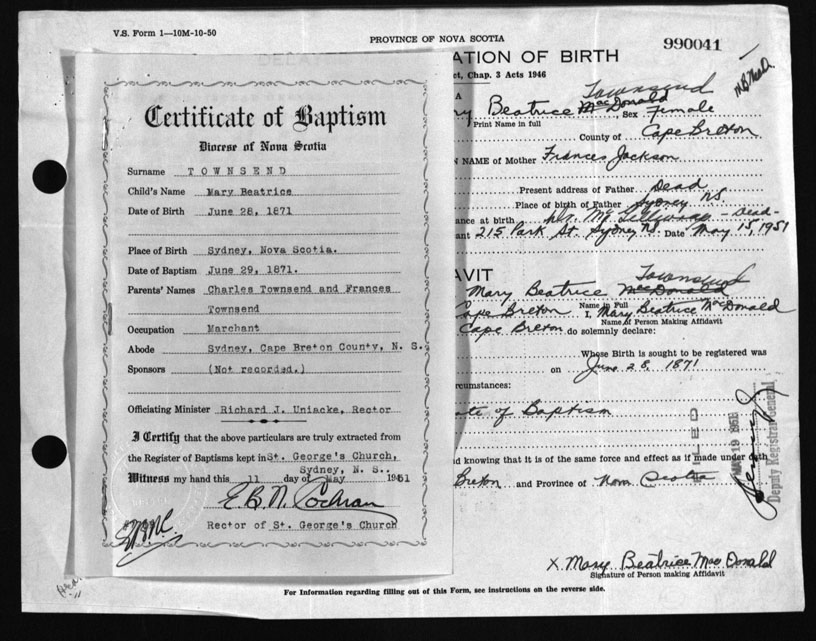 V.S. Form 1—10M-10-50
PROVINCE OF NOVA SCOTIA
990041
Certificate of Baptism
Diocese of Nova Scotia
Surname TOWNSEND
Child's Name Mary Beatrice
Date of Birth June 28, 1871
Place of Birth Sydney, Nova Scotia.
Date of Baptism June 29, 1871.
Parents' Names Charles Townsend and Frances
Townsend
Occupation Marchant
Abode Sydney, Cape Breton County, N. S.
Sponsors (Not recorded.)
Officiating Minister Richard J. Uniacke, Rector
I Certify that the above particulars are truly extracted from
the Register of Baptisms kept in St. George's Church,
Sydney, N. S..
Witness my hand this 11 day of May 1951
E.B.N. Cochran
Rector of St. George's Church
ATION OF BIRTH
ct, Chap. 3 Acts 1946
Townsend
ry Beatrice MacDonald, Sex Female
Print Name in full
County of Cape Breton
N NAME of Mother Frances Jackson
Present address of Father Dead
Place of birth of Father Sydney NS.
ance at birth Dr. - Dead -
ant 215 Park St. Sydney NS. Date May 15, 1951
AVIT
Townsend
Mary Beatrice MacDonald
Name in Full
Cape Breton I, Mary Beatrice MacDonald
Name of Person Making Affidavit
Cape Breton do solemnly declare:
Whose Birth is sought to be registered was
on June 28, 1871
circumstances:
ate of Baptism
d knowing that it is of the same force and effect as if made under oath
Breton and Province of Nova Scotia
Deputy Registrar General
x Mary Beatrice MacDonald
Signature of Person making Affidavit
For Information regarding filling out of this Form, see instructions on the reverse side.